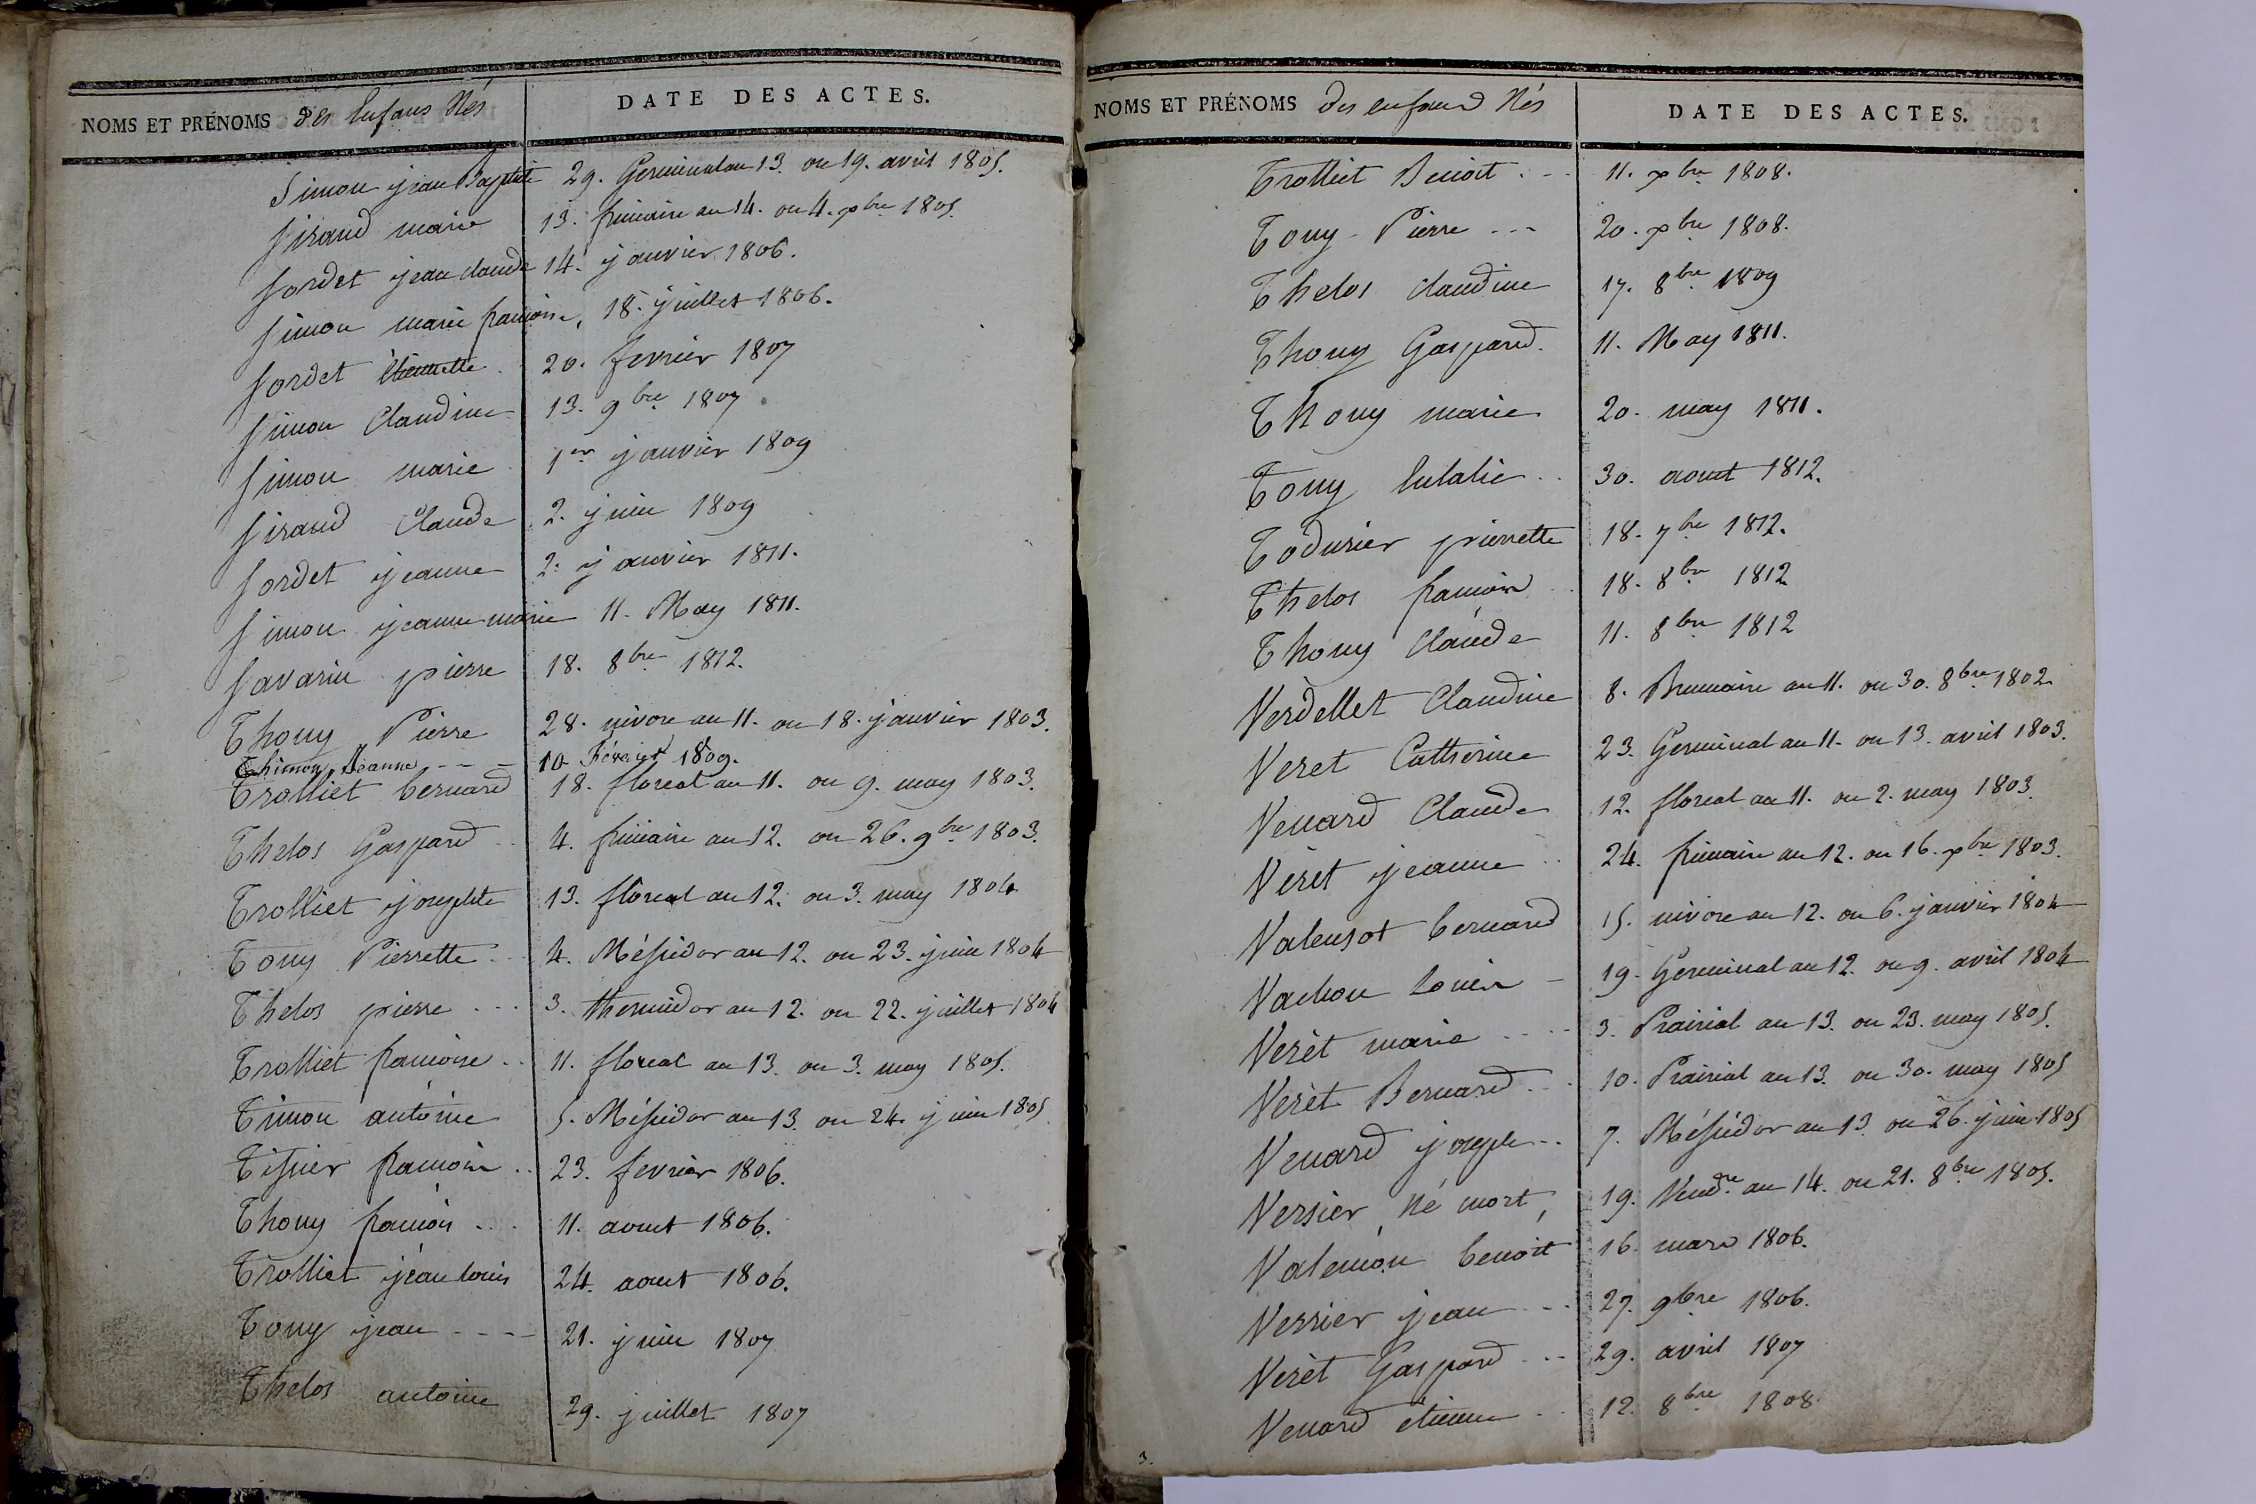 NOMS ET PRÉNOMS des Enfans Nés DATE DES ACTES.
Simon jean Baptiste 29. Germinal an 13. ou 19. avril 1805.
Siraud marie 13. frimaire an 14. ou 4. xbre 1805.
Sordet jean claude 14. janvier 1806.
Simon marie francoise, 18. juillet 1806.
Sordet Etiennette 20. fevrier 1807
Simon Claudine 13. 9bre 1807.
Simon marie 1er janvier 1809
Siraud Claude 2. juin 1809
Sordet jeanne 2. janvier 1811.
Simon jeanne marie 11. May 1811.
Savarin pierre 18. 8bre 1812.
Thony Pierre 28. nivose an 11. ou 18. janvier 1803.
Thimon, Jeanne --- 10 Février 1809.
Trolliet bernard 18. floreal an 11. ou 9. may 1803.
Thelos Gaspard .. 4. frimaire an 12. ou 26. 9bre 1803.
Trolliet josephte 13. floreal an 12. ou 3. may 1804
Tony Pierrette .. 4. Messidor an 12. ou 23. juin 1804
Thelos pierre ... 3. thermidor an 12. ou 22. juillet 1804
Trolliet francoise .. 11. floreal an 13. ou 3. may 1805.
Timon antoine 5. Messidor an 13. ou 24. juin 1805
Tissier francois .. 23. fevrier 1806.
Thony francois ... 11. aout 1806.
Trolliet jean louis 24. aout 1806.
Tony jean ---- 21. juin 1807
Thelos antoine 29. juillet 1807
NOMS ET PRÉNOMS des enfans Nés DATE DES ACTES.
Trolliet Benoit .-- 11. xbre 1808.
Tony Pierre --- 20. xbre 1808.
Thelos claudine 17. 8bre 1809
Thony Gaspard. 11. May 1811.
Thony marie 20. may 1811.
Tony Eulalie .. 30. aout 1812.
Todurier pierrette 18. 7bre 1812.
Thelos francois .. 18. 8bre 1812
Thony Claude 11. 8bre 1812
Verdellet Claudine 8. Brumaire an 11. ou 30. 8bre 1802.
Veret Catherine 23. Germinal an 11. ou 13. avril 1803.
Venard Claude 12. floreal an 11. ou 2. may 1803.
Verèt jeanne .. 24. frimaire an 12. ou 16. xbre 1803.
Valensot bernard 15. nivose an 12. ou 6. janvier 1804
Vachon Louis - 19. Germinal an 12. ou 9. avril 1804
Verèt marie .... 3. Prairial an 13. ou 23. may 1805.
Verèt Bernard ... 10. Prairial an 13. ou 30. may 1805
Venard joseph .. 7. Messidor an 13. ou 26. juin 1805
Versier, Né mort, 19. Vendre an 14. ou 21. 8bre 1805.
Valencon benoit 16. mars 1806.
Verrier jean --. 27. 9bre 1806.
Verèt Gaspard .-- 29. avril 1807
Venard etienne .. 12. 8bre 1808.
3.